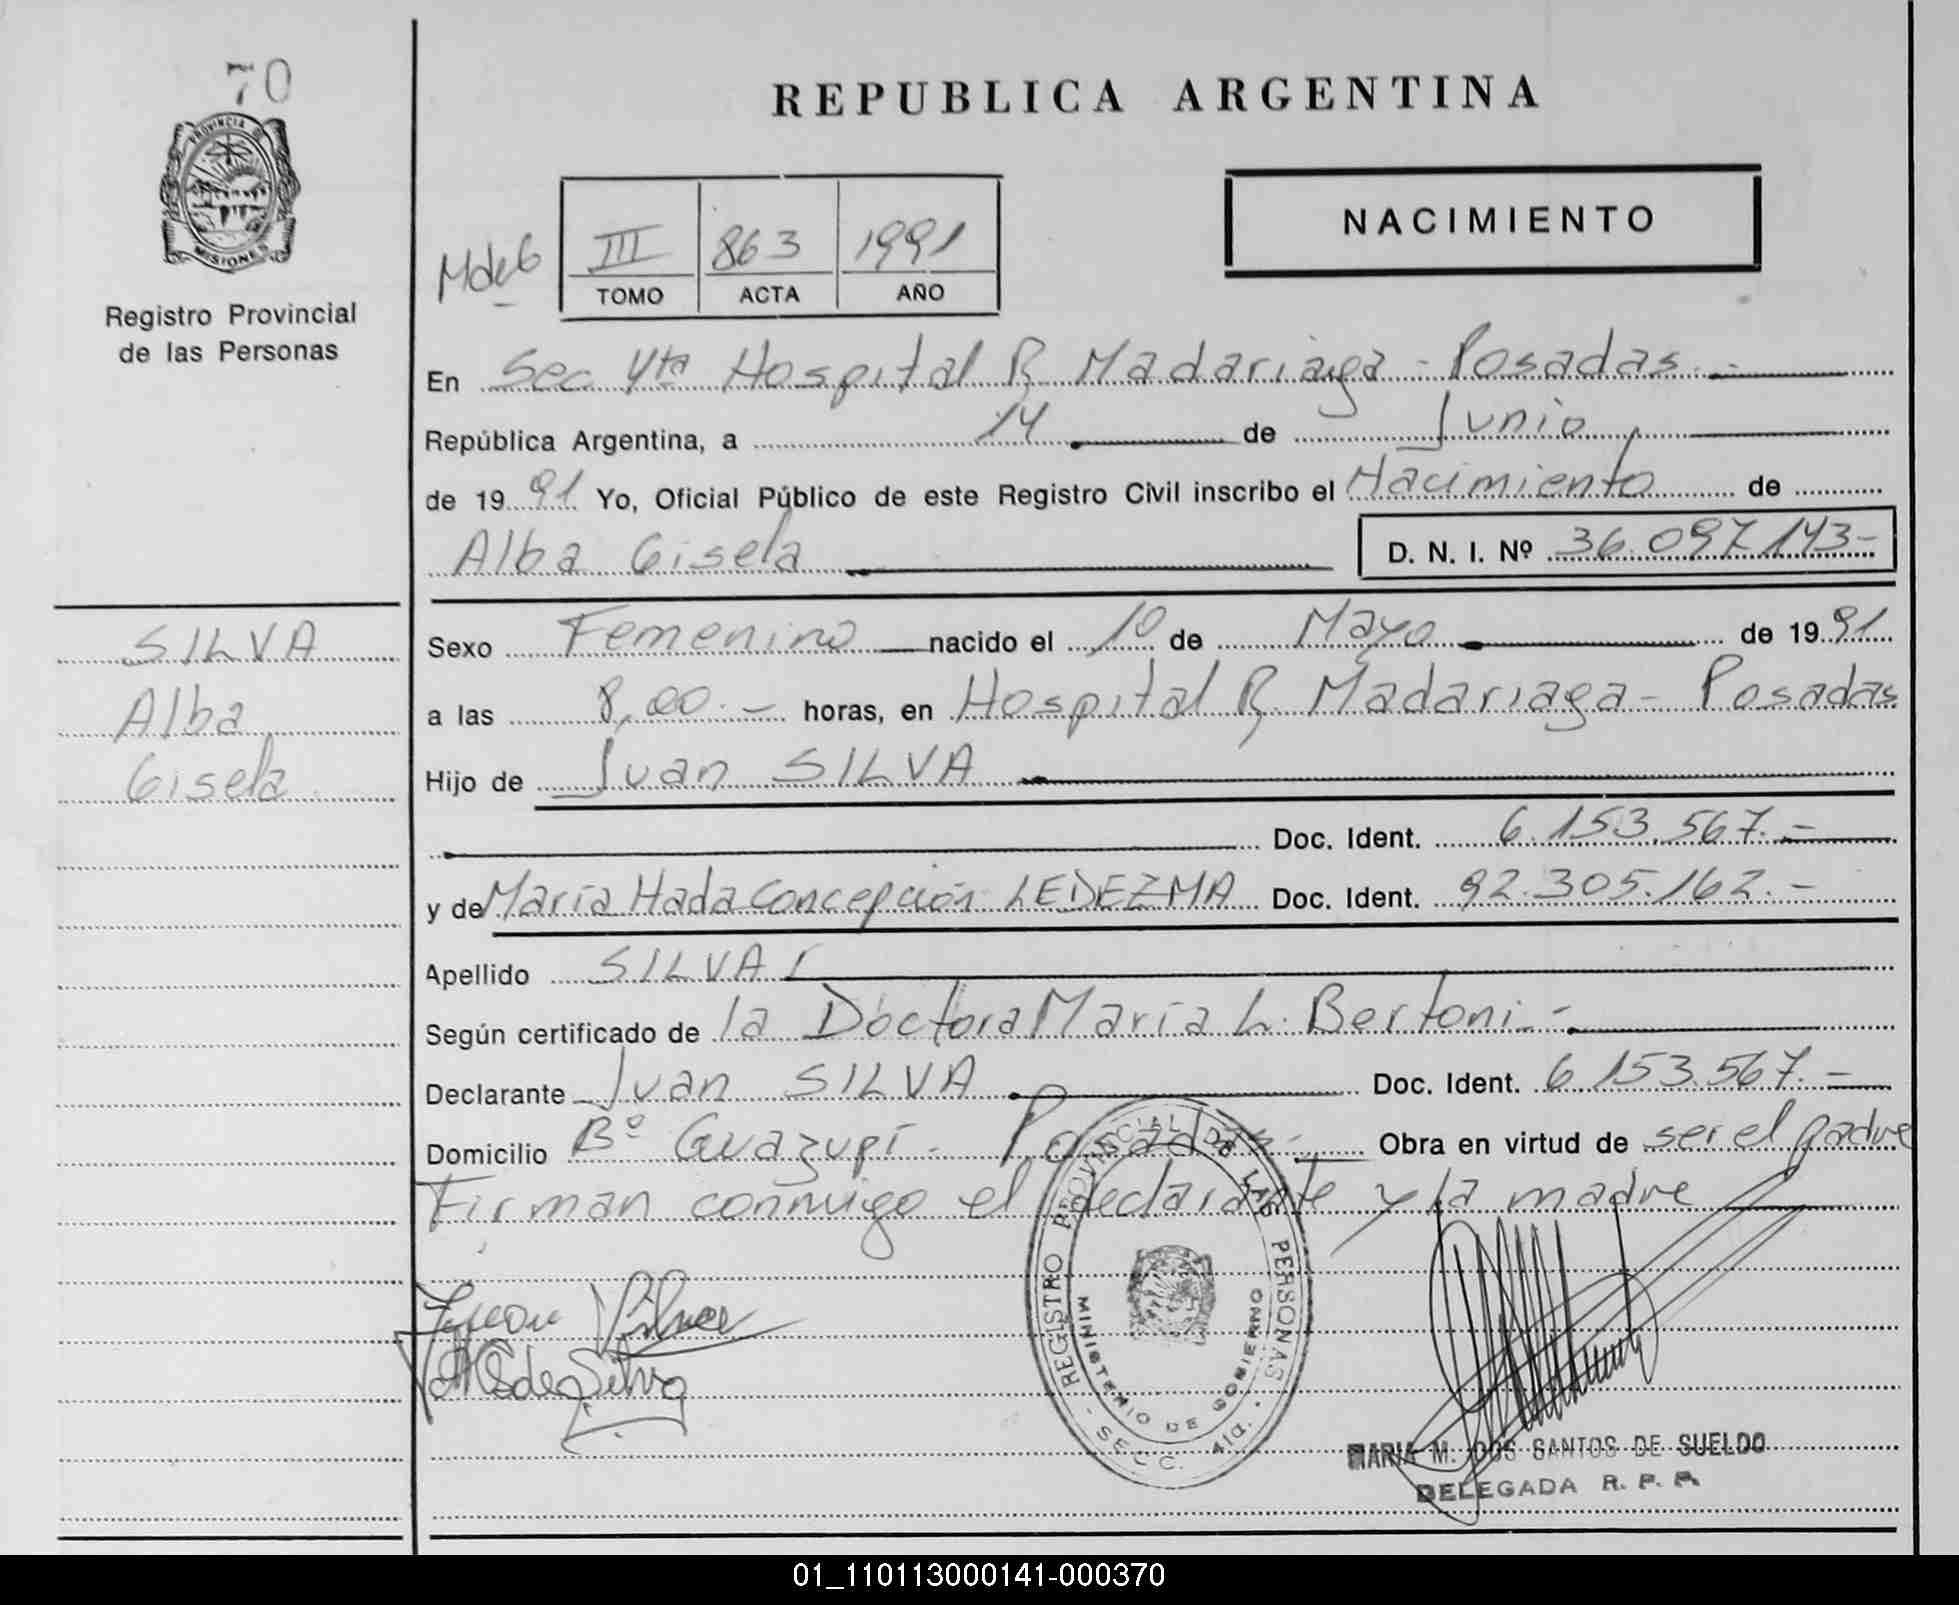 70
PROVINCIA DE
MISIONES
Registro Provincial
de las Personas
SILVA
Alba
Gisela
REPUBLICA ARGENTINA
NACIMIENTO
III 863 1991
TOMO ACTA AÑO
En Sec 4ta Hospital R. Madariaga - Posadas.-
República Argentina, a 14 de Junio
de 1991 Yo, Oficial Público de este Registro Civil inscribo el Nacimiento de
Alba Gisela D. N. I. Nº 36.097.143-
Sexo Femenino nacido el 10 de Mayo de 1991
a las 8,00.- horas, en Hospital R. Madariaga - Posadas
Hijo de Juan SILVA
Doc. Ident. 6.153.567.-
y de María Hada Concepción LEDEZMA Doc. Ident. 92.305.162.-
Apellido SILVA
Según certificado de la Doctora María L. Bertoni.-
Declarante Juan SILVA Doc. Ident. 6.153.567.-
Domicilio Bº Guazupí - Posadas.- Obra en virtud de ser el padre
Firman conmigo el declarante y la madre
Juan Silva
de Silva
REGISTRO PROVINCIAL DE LAS PERSONAS
MINISTERIO DE GOBIERNO
- SECC. 4ta. -
MARIA M. DOS SANTOS DE SUELDO
DELEGADA R. P. P.
01_110113000141-000370